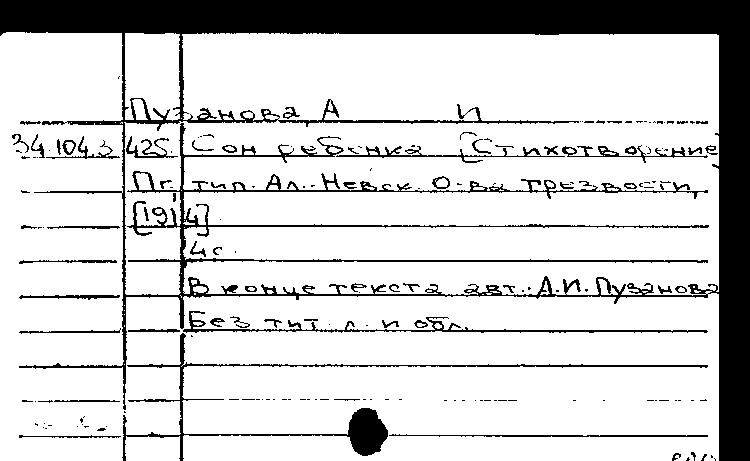 Пузанова, А И
34.104.3.425. Сон ребенка [Стихотворение]
Пг, тип. Ал.-Невск. О-ва трезвости,
[1914]
4с.
В конце текста авт.: А.И. Пузанова
Без тит. л. и обл.